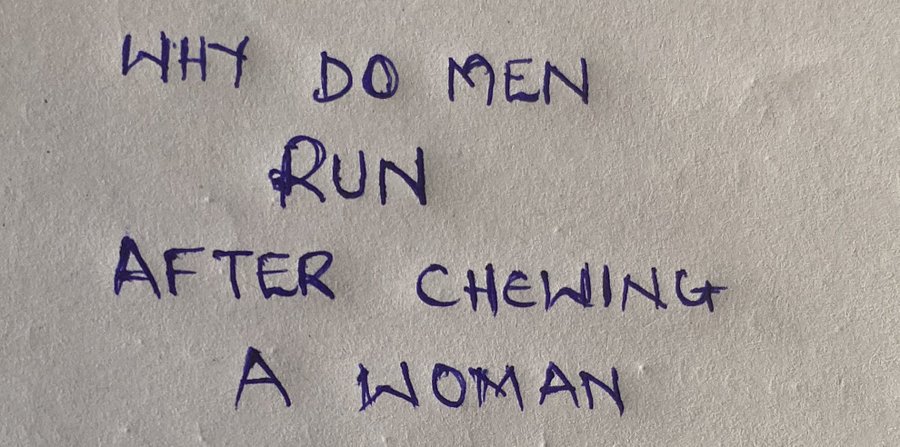 WHY DO MEN
RUN
AFTER CHEWING
A WOMAN